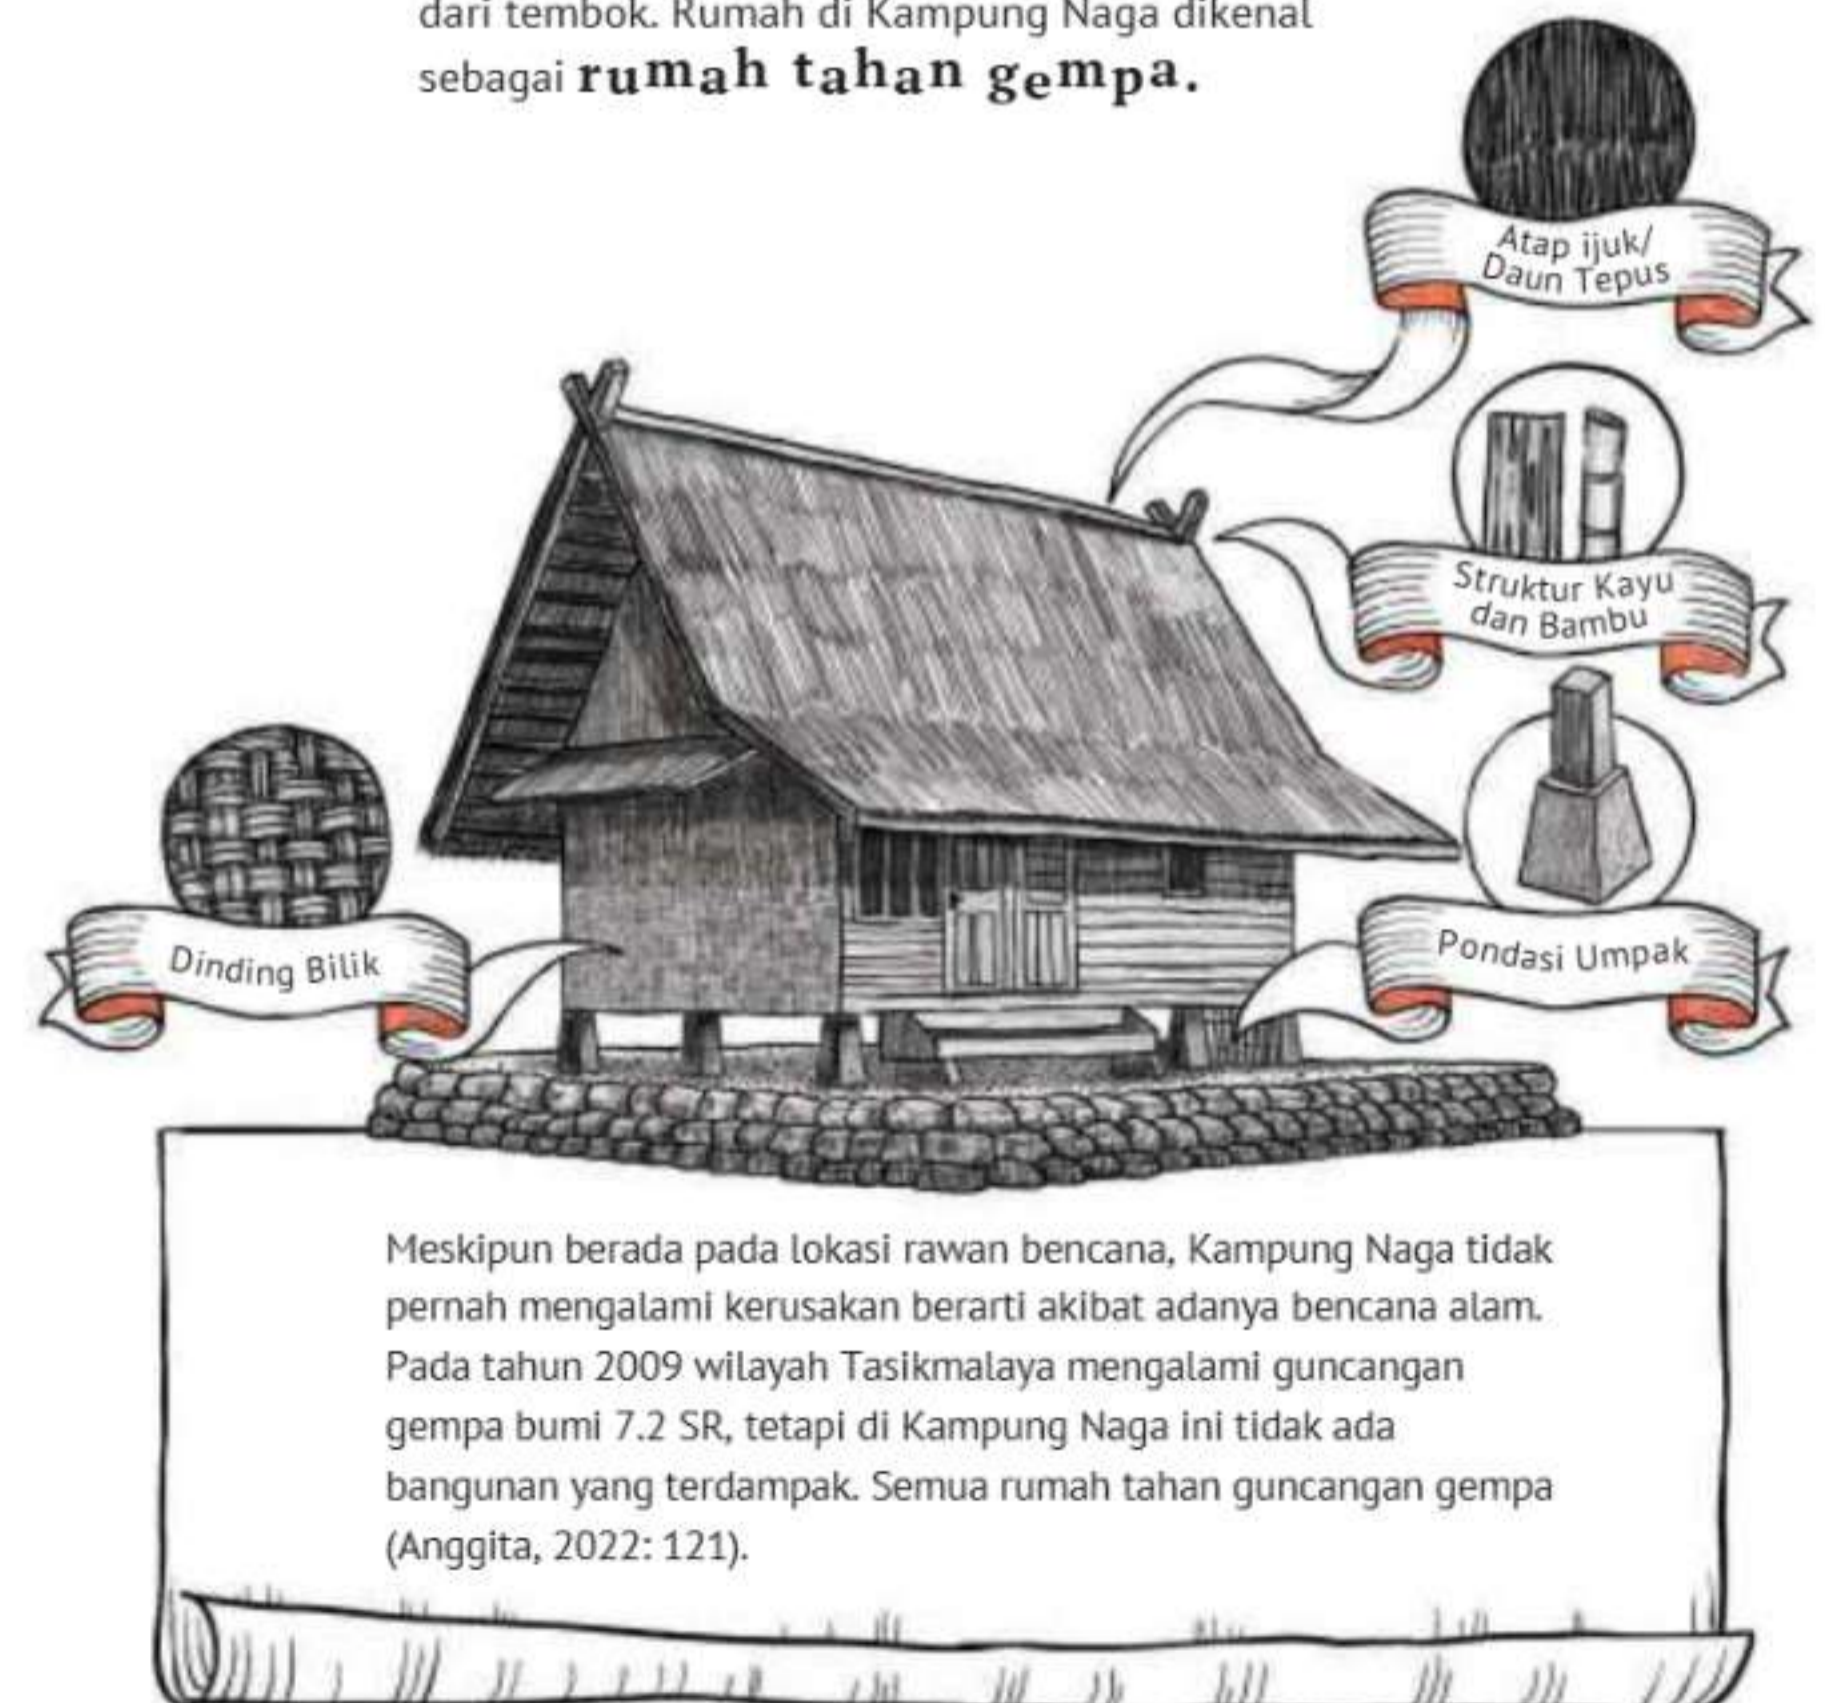 dari tembok. Rumah di Kampung Naga dikenal
sebagai rumah tahan gempa.
Atap ijuk/
Daun Tepus
Struktur Kayu
dan Bambu
Dinding Bilik
Pondasi Umpak
Meskipun berada pada lokasi rawan bencana, Kampung Naga tidak
pernah mengalami kerusakan berarti akibat adanya bencana alam.
Pada tahun 2009 wilayah Tasikmalaya mengalami guncangan
gempa bumi 7.2 SR, tetapi di Kampung Naga ini tidak ada
bangunan yang terdampak. Semua rumah tahan guncangan gempa
(Anggita, 2022: 121).